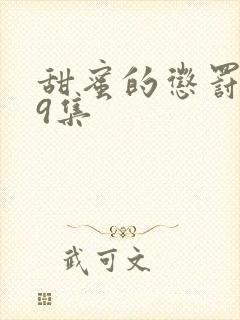 甜蜜的惩罚
9集
武可文